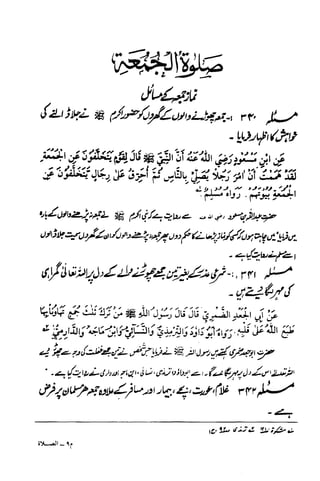 صَلٰوةُ الْجُمُعَةِ
نماز جمعہ کے مسائل
مسئلہ ۳۴۰ :- جمعہ چھوڑنے والوں کے گھروں کو حضور اکرم ﷺ نے جلا ڈالنے کی
خواہش کا اظہار فرمایا۔
عَنِ ابْنِ مَسْعُوْدٍ رَضِيَ اللهُ عَنْهُ أَنَّ النَّبِيَّ ﷺ قَالَ لِقَوْمٍ يَتَخَلَّفُوْنَ عَنِ الْجُمُعَةِ
لَقَدْ هَمَمْتُ أَنْ آمُرَ رَجُلًا يُصَلِّيْ بِالنَّاسِ ثُمَّ أُحَرِّقَ عَلٰى رِجَالٍ يَتَخَلَّفُوْنَ عَنِ
الْجُمُعَةِ بُيُوْتَهُمْ. رَوَاهُ مُسْلِمٌ
حضرت عبداللہ بن مسعود رضی اللہ عنہ سے روایت ہے کہ نبی اکرم ﷺ نے جمعہ نہ پڑھنے والوں کے بارہ
میں فرمایا میں چاہتا ہوں کہ کسی کو نماز پڑھانے کا حکم دوں پھر جمعہ نہ پڑھنے والوں کو ان کے گھروں سمیت جلا ڈالوں
اسے مسلم نے روایت کیا ہے۔
مسئلہ ۳۴۱ :- شرعی عذر کے بغیر تین جمعے چھوڑنے والے کے دل پر اللہ تعالیٰ گمراہی
کی مہر لگا دیتے ہیں۔
عَنْ أَبِي الْجَعْدِ الضُّمَيْرِيِّ قَالَ قَالَ رَسُوْلُ اللهِ ﷺ مَنْ تَرَكَ ثَلٰثَ جُمَعٍ تَهَاوُنًا بِهَا
طَبَعَ اللهُ عَلٰى قَلْبِهِ. رَوَاهُ أَبُوْ دَاوُدَ وَالتِّرْمِذِيُّ وَالنَّسَائِيُّ وَابْنُ مَاجَهْ وَالدَّارِمِيُّ
حضرت ابو جعد ضمیری کہتے ہیں رسول اللہ ﷺ نے فرمایا جس شخص نے تین جمعے غفلت کی وجہ سے چھوڑ دیئے
اللہ تعالیٰ اس کے دل پر مہر لگا دے گا۔ اسے ابو داؤد، ترمذی، نسائی، ابن ماجہ اور دارمی نے روایت کیا ہے۔
مسئلہ ۳۴۲ غلام، عورت، بچے، بیمار اور مسافر کے علاوہ جمعہ ہر مسلمان پر فرض
ہے۔
م ۹ - الصلاة